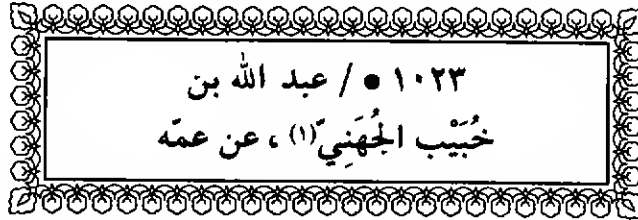 ١٠٢٣ ● / عبد الله بن
خُبَيْب الجُهَنِيّ(١) ، عن عمّه